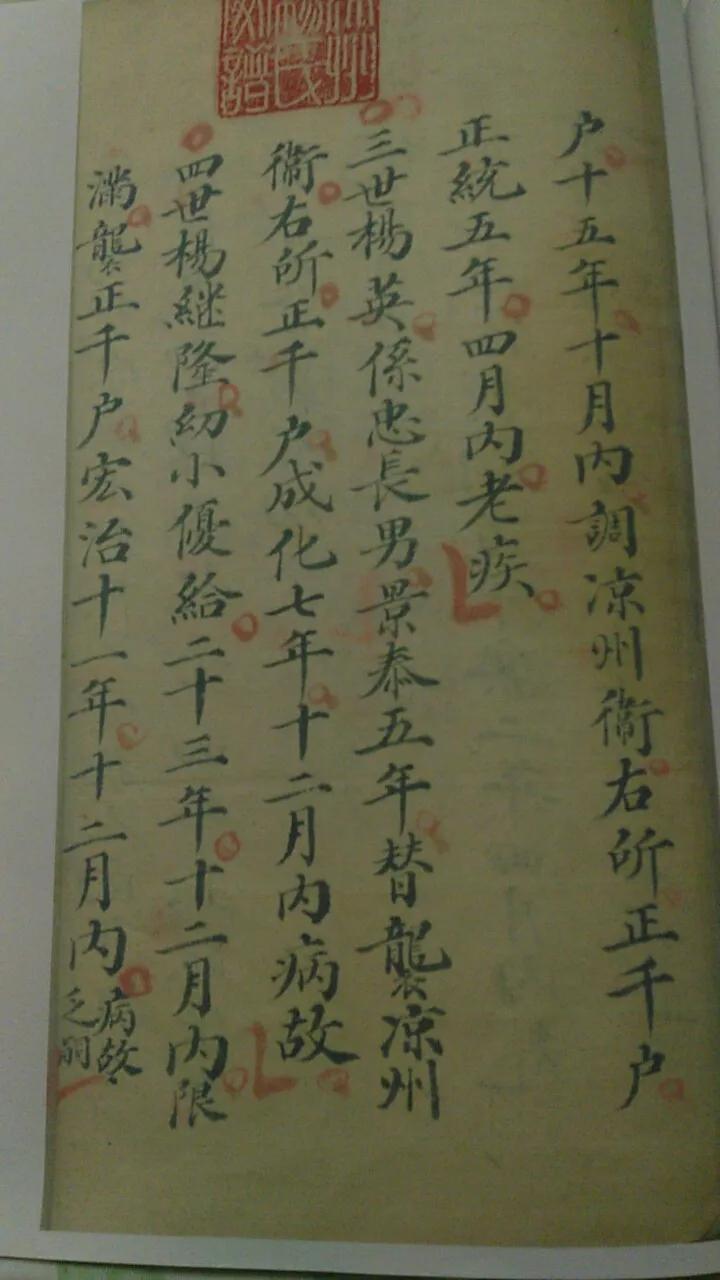 州
楊氏
譜
户十五年十月内調凉州衞右所正千户
正統五年四月内老疾
三世楊英係忠長男景泰五年替襲凉州
衞右所正千户成化七年十二月内病故
四世楊継隆幼小優給二十三年十二月内限
滿襲正千户宏治十一年十二月内病故
乏嗣